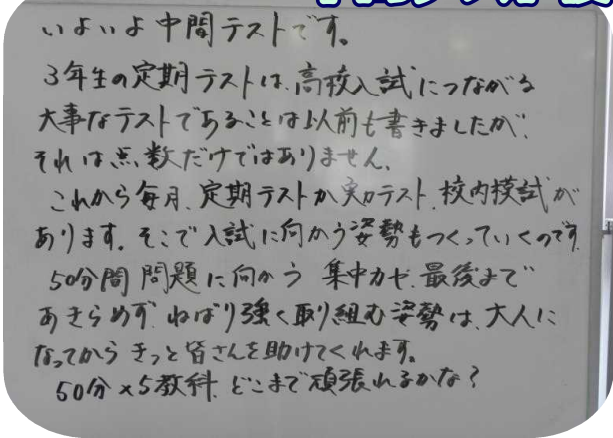 いよいよ中間テストです。
3年生の定期テストは、高校入試につながる
大事なテストであることは以前も書きましたが、
それは点数だけではありません。
これから毎月、定期テストか実力テスト、校内模試が
あります。そこで入試に向かう姿勢もつくっていくのです。
50分間 問題に向かう 集中力や、最後まで
あきらめず ねばり強く取り組む姿勢は、大人に
なってから きっと皆さんを助けてくれます。
50分×5教科、どこまで頑張れるかな?